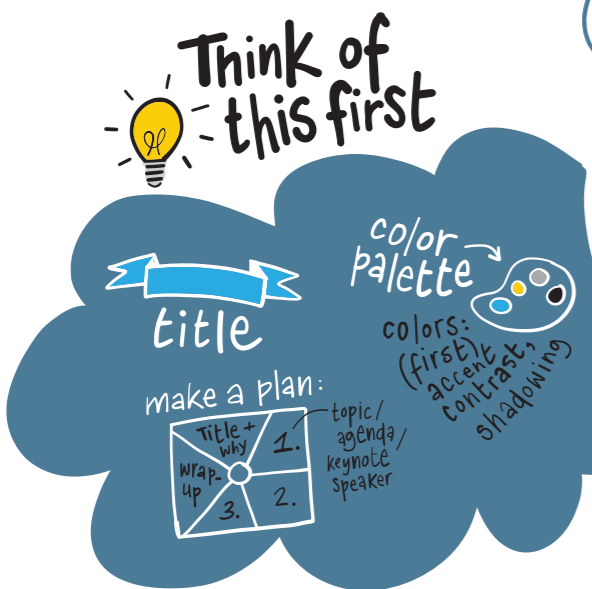 Think of
this first
title
color
palette
colors:
(first)
accent
contrast,
shadowing
make a plan:
Title +
why
1.
2.
3.
wrap-
up
topic/
agenda/
keynote
speaker